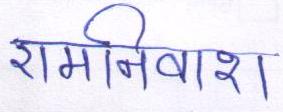 रामनिवाश